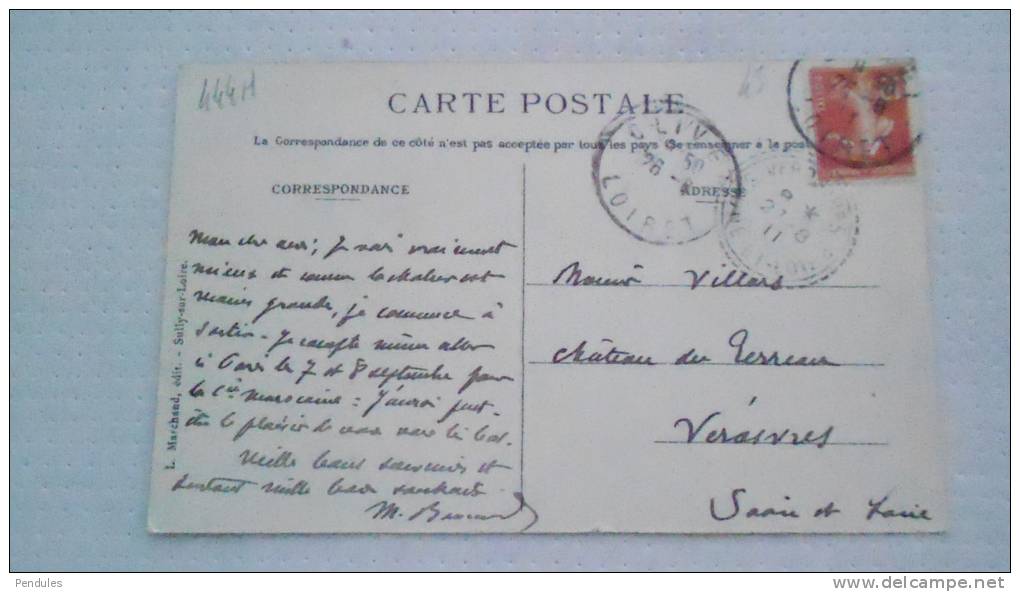 444H
45
CARTE POSTALE
La Correspondance de ce côté n'est pas acceptée par tous les pays (Se renseigner à la post
CORRESPONDANCE
ADRESSE
OLIVE
50
26 - 8
LOIRET
LOIRET
27 - 8
11
L. Marchand, édit. - Sully-sur-Loire.
Mon cher ami, Je vais vraiment
mieux et comme la chaleur est
moins grande, je commence à
sortir - Je compte même aller
à Paris les 7 et 8 septembre pour
la Cie marocaine : J'aurai peut-
être le plaisir de vous voir là bas.
Mille bons souvenirs et
surtout mille bons souhaits
M.
Villars
château du Terreau
Verosvres
Saône et Loire
Pendules
delcampe.net